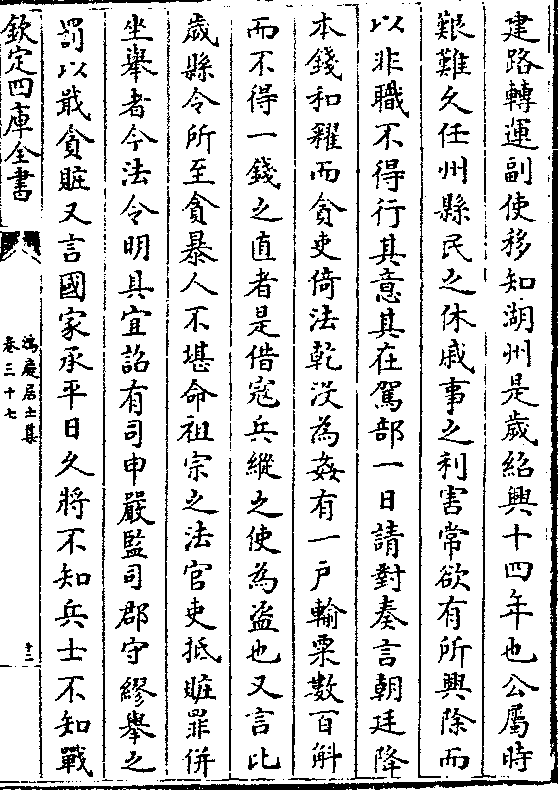 建路轉運副使移知湖州是歲紹興十四年也公屬時
艱難久任州縣民之休戚事之利害常欲有所興除而
以非職不得行其意其在駕部一日請對奏言朝廷降
本錢和糴而貪吏倚法乾没為姦有一户輸粟數百斛
而不得一錢之直者是借寇兵縱之使為盗也又言比
歲縣令所至貪暴人不堪命祖宗之法官吏抵賍罪併
坐舉者今法令明具宜詔有司申嚴監司郡守繆舉之
罰以戢貪賍又言國家承平日久將不知兵士不知戰
欽定四庫全書
鴻慶居士集
卷三十七
十二